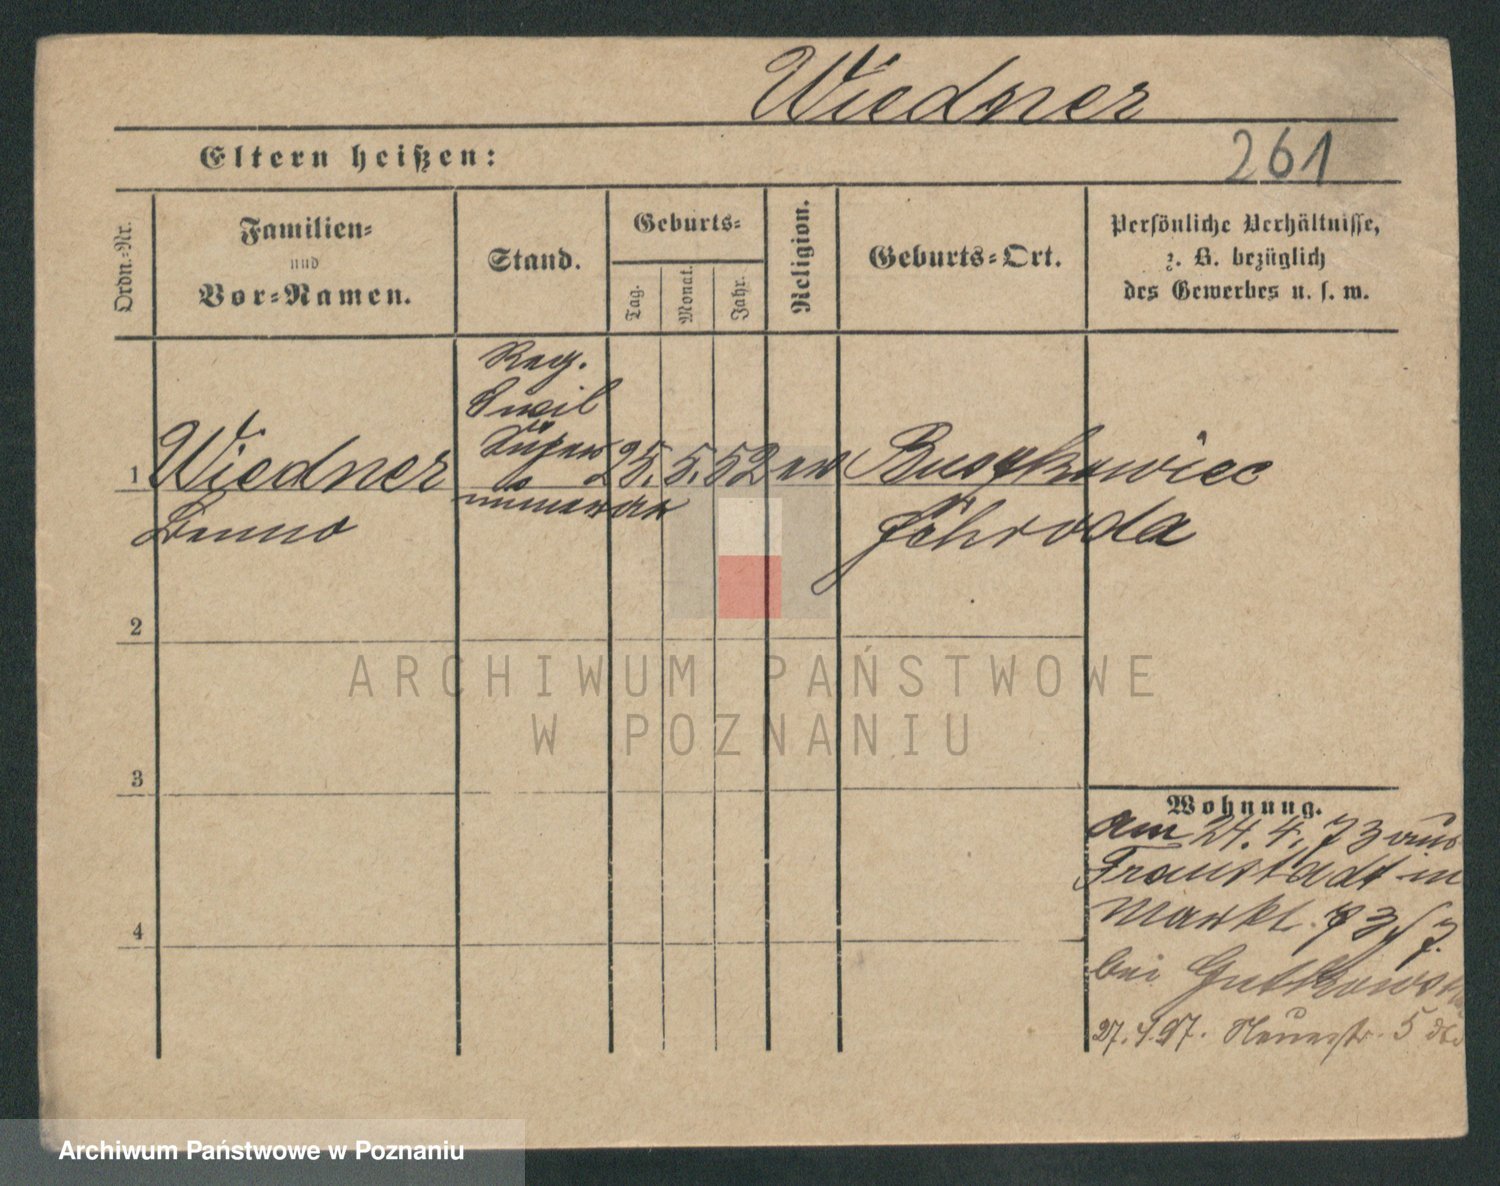 Wiedner
Eltern heißen:
261
Ordn.-Nr.
Familien-
und
Vor-Namen.
Stand.
Geburts-
Tag.
Monat.
Jahr.
Religion.
Geburts-Ort.
Persönliche Verhältnisse,
z. B. bezüglich
des Gewerbes u. s. w.
Reg.
Civil
Super
numerar
1 Wiedner 25. 5. 52 ev
Benno
Schroda
2
3
4
Wohnung.
am 24. 4. 73 aus
Fraustadt in
Markt. 73/7.
bei
27. 4. 97. 5
ARCHIWUM PAŃSTWOWE
W POZNANIU
Archiwum Państwowe w Poznaniu